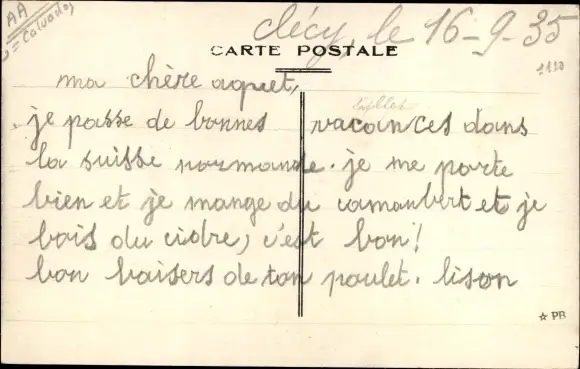 AA
= Calvados
clécy, le 16-9-35
CARTE POSTALE
1110
ma chère aquet,
je passe de bonnes vacances dans
la suisse normande. je me porte
bien et je mange du camanbert et je
bois du cidre, c'est bon!
bon baisers de ton poulet. lison
☆ PB